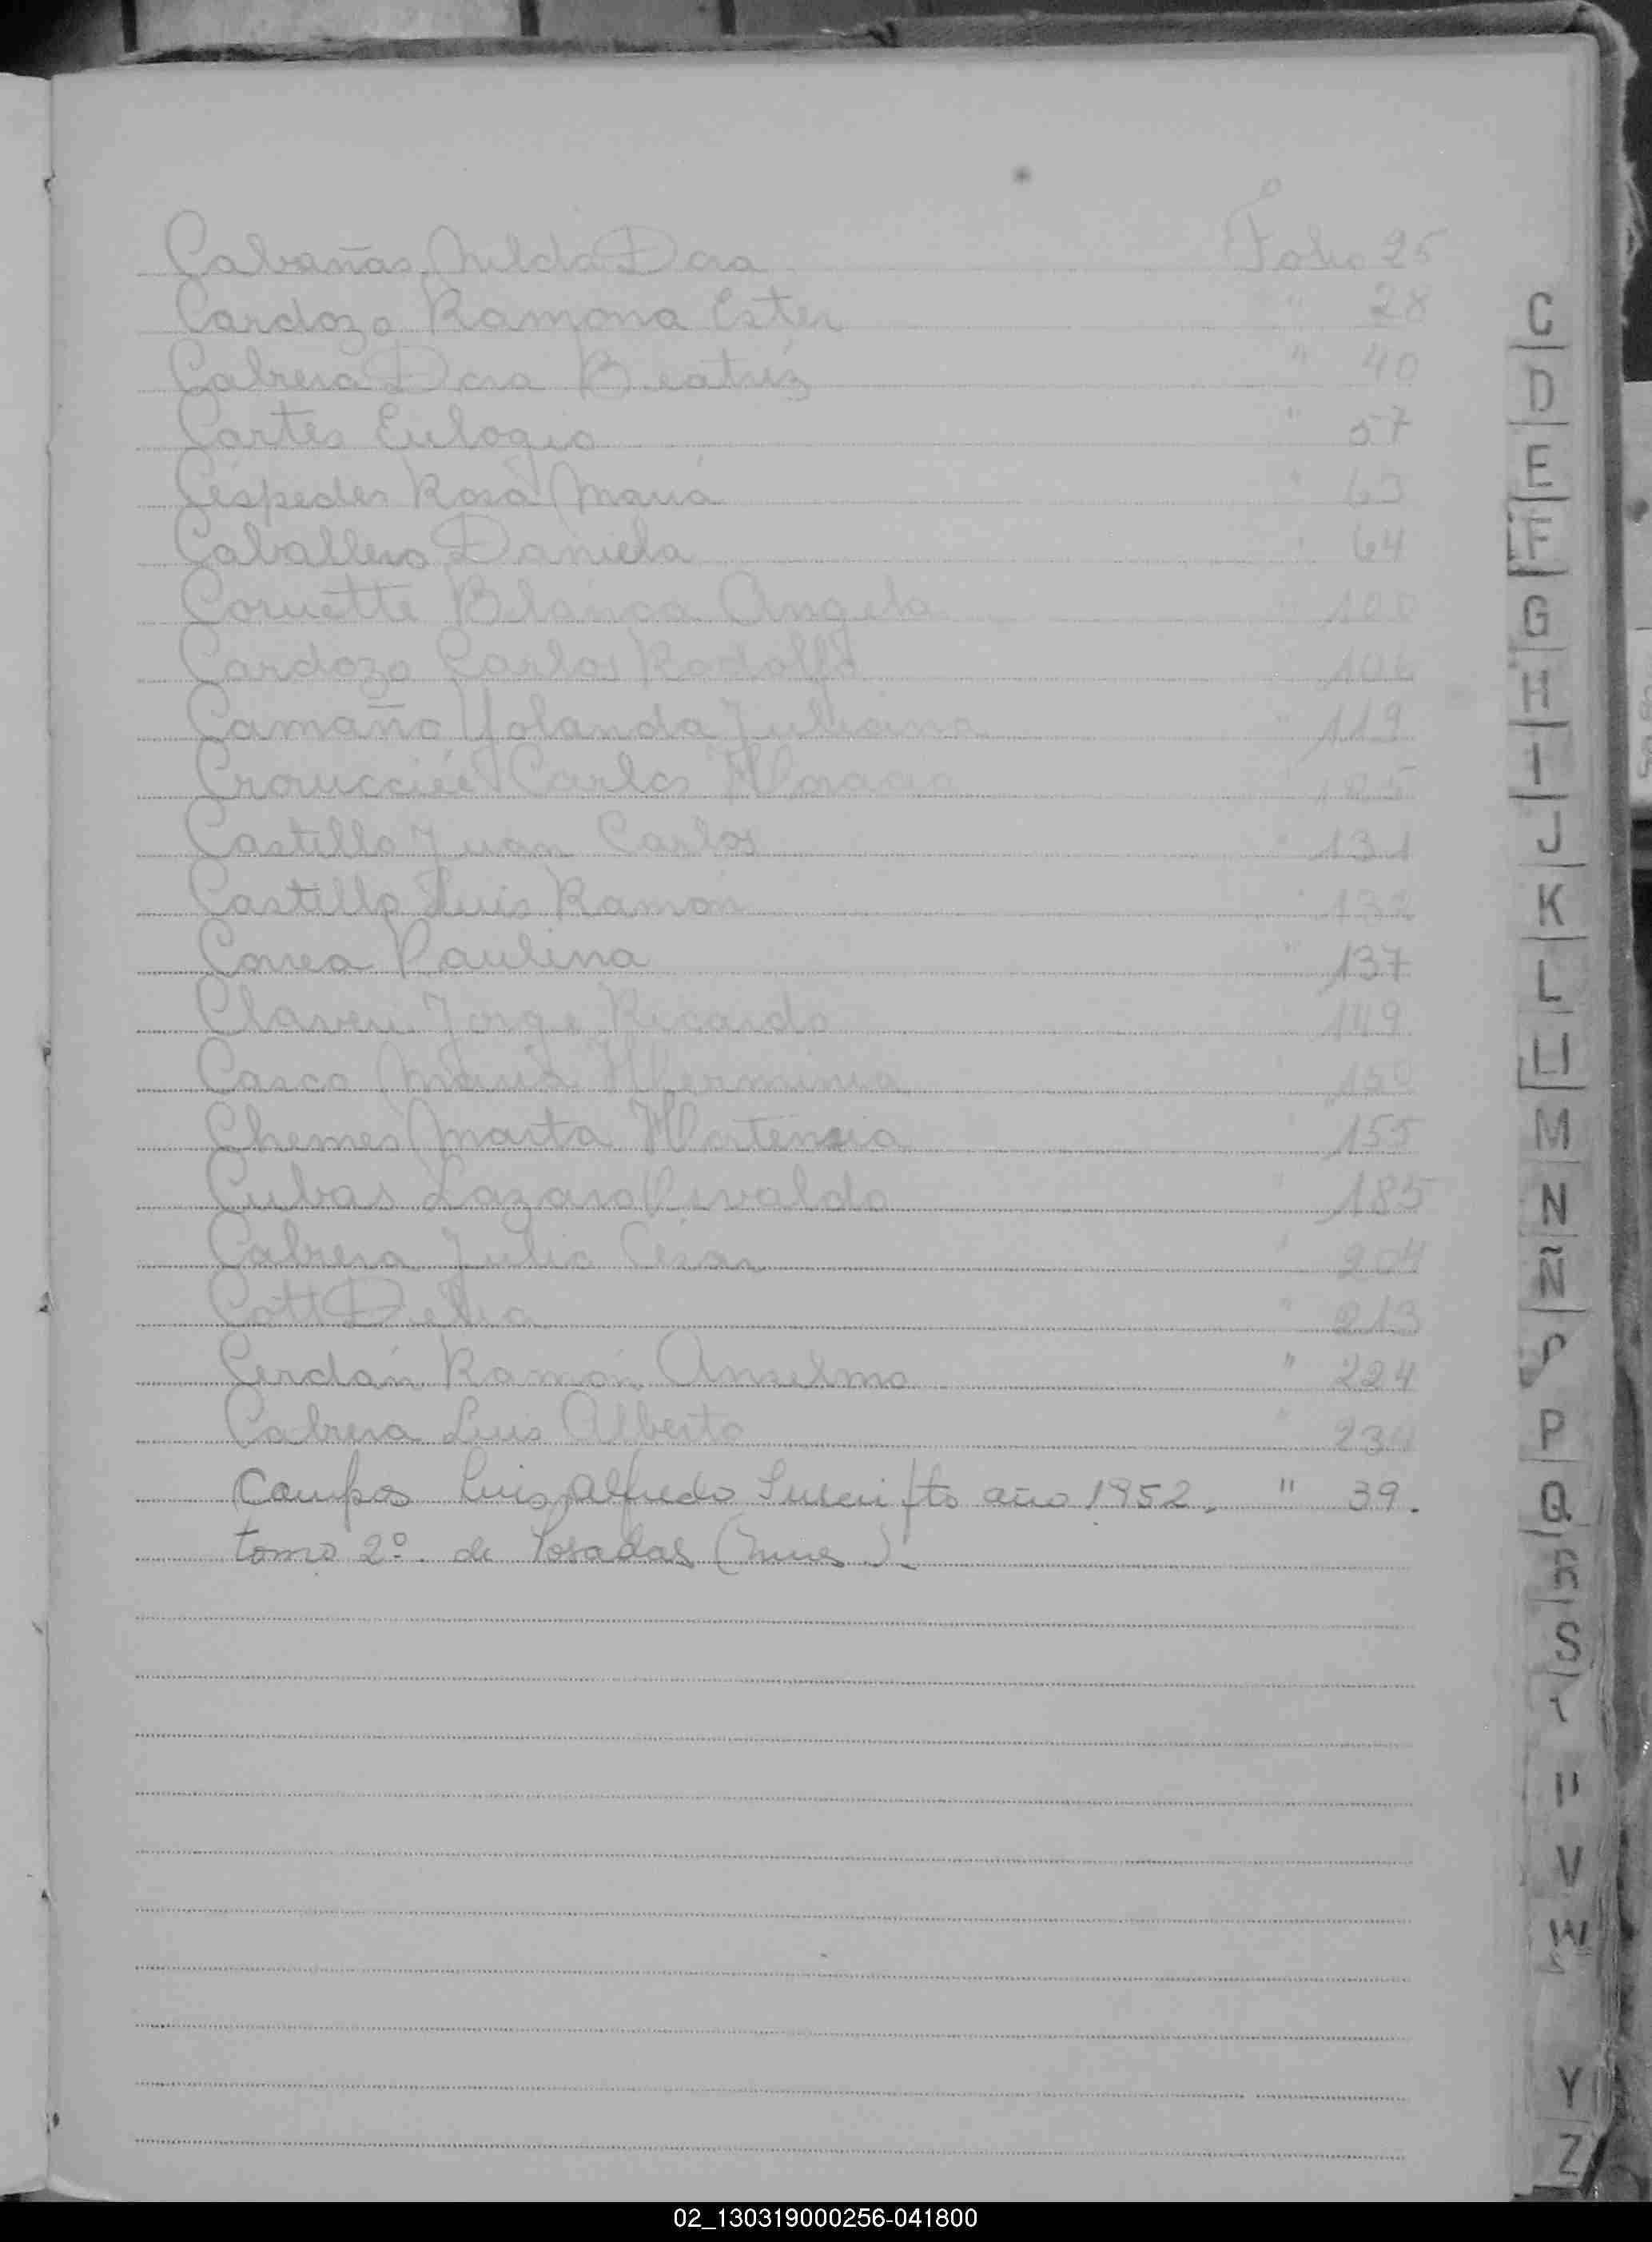 Cabañas Nilda Dora Folio 25
Cardozo Ramona Ester " 28
Cabrera Dora Beatriz " 40
Cartes Eulogio " 57
Céspedes Rosa María " 63
Caballero Daniela " 64
Blanca Angela 100
Cardozo Carlos Rodolfo 106
Camaño Yolanda Juliana " 119
Carlos Horacio
Castillo Juan Carlos " 131
Castillo Luis Ramón " 132
Correa Paulina " 137
Jorge Ricardo 149
Casco María Herminia 150
Chemes Marta Hortensia " 155
Cubas Lazaro " 185
Cabrera Julio César " 204
Cott Delia " 213
Cerdán Ramón Anselmo " 224
Cabrera Luis Alberto " 234
Campos Luis Alfredo año 1952. " 39.
tomo 2º. de Posadas
C
D
E
F
G
H
I
J
K
L
LL
M
N
Ñ
P
Q
R
S
U
V
W
Y
Z
02_130319000256-041800